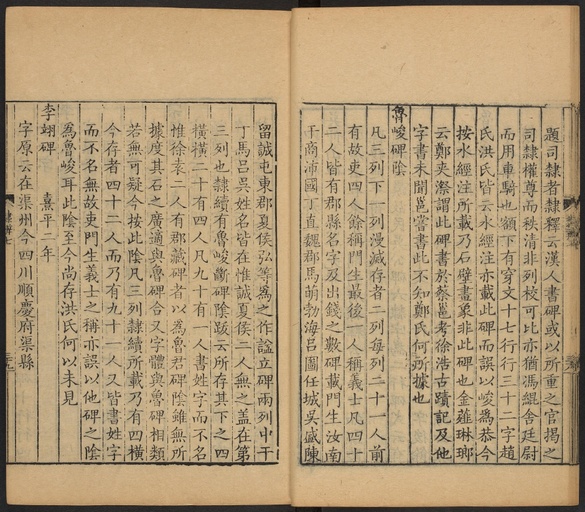 題司隸者隸釋云漢人書碑或以所重之官揭之
司隸權尊而秩清非列校可比亦猶馮緄舍廷尉
而用車騎也額下有穿文十七行行三十二字趙
氏洪氏皆云水經注亦載此碑而誤以峻為恭今
按水經注所載乃石壁畫象非此碑也金薤琳瑯
云鄭夾漈謂此碑書於蔡邕考徐浩古蹟記及他
字書未聞邕嘗書此不知鄭氏何所據也
魯峻碑陰
凡三列下一列漫滅存者二列每列二十一人前
有故吏四人餘稱門生最後一人稱義士凡四十
二人皆有郡縣名字及出錢之數碑載門生汝南
干商沛國丁直魏郡馬萌勃海呂圖任城吳盛陳
留誠屯東郡夏侯弘等為之作謚立碑兩列中干
丁馬呂吳姓名皆在惟誠夏侯二人無之蓋在第
三列也隸續有魯峻斷碑陰跋云所存其下之四
橫橫二十有四人凡九十有一人書姓字而不名
惟徐袁二人有郡藏碑者以為魯君碑陰雖無所
據度其石之廣適與魯碑合又字體與魯碑相類
若無可疑今按此陰凡三列隸續所載乃有四橫
今存者四十二人而乃有九十一人又皆書姓字
而不名無故吏門生義士之稱亦誤以他碑之陰
為魯峻耳此陰至今尚存洪氏何以未見
李翊碑 熹平二年
字原云在渠州今四川順慶府渠縣